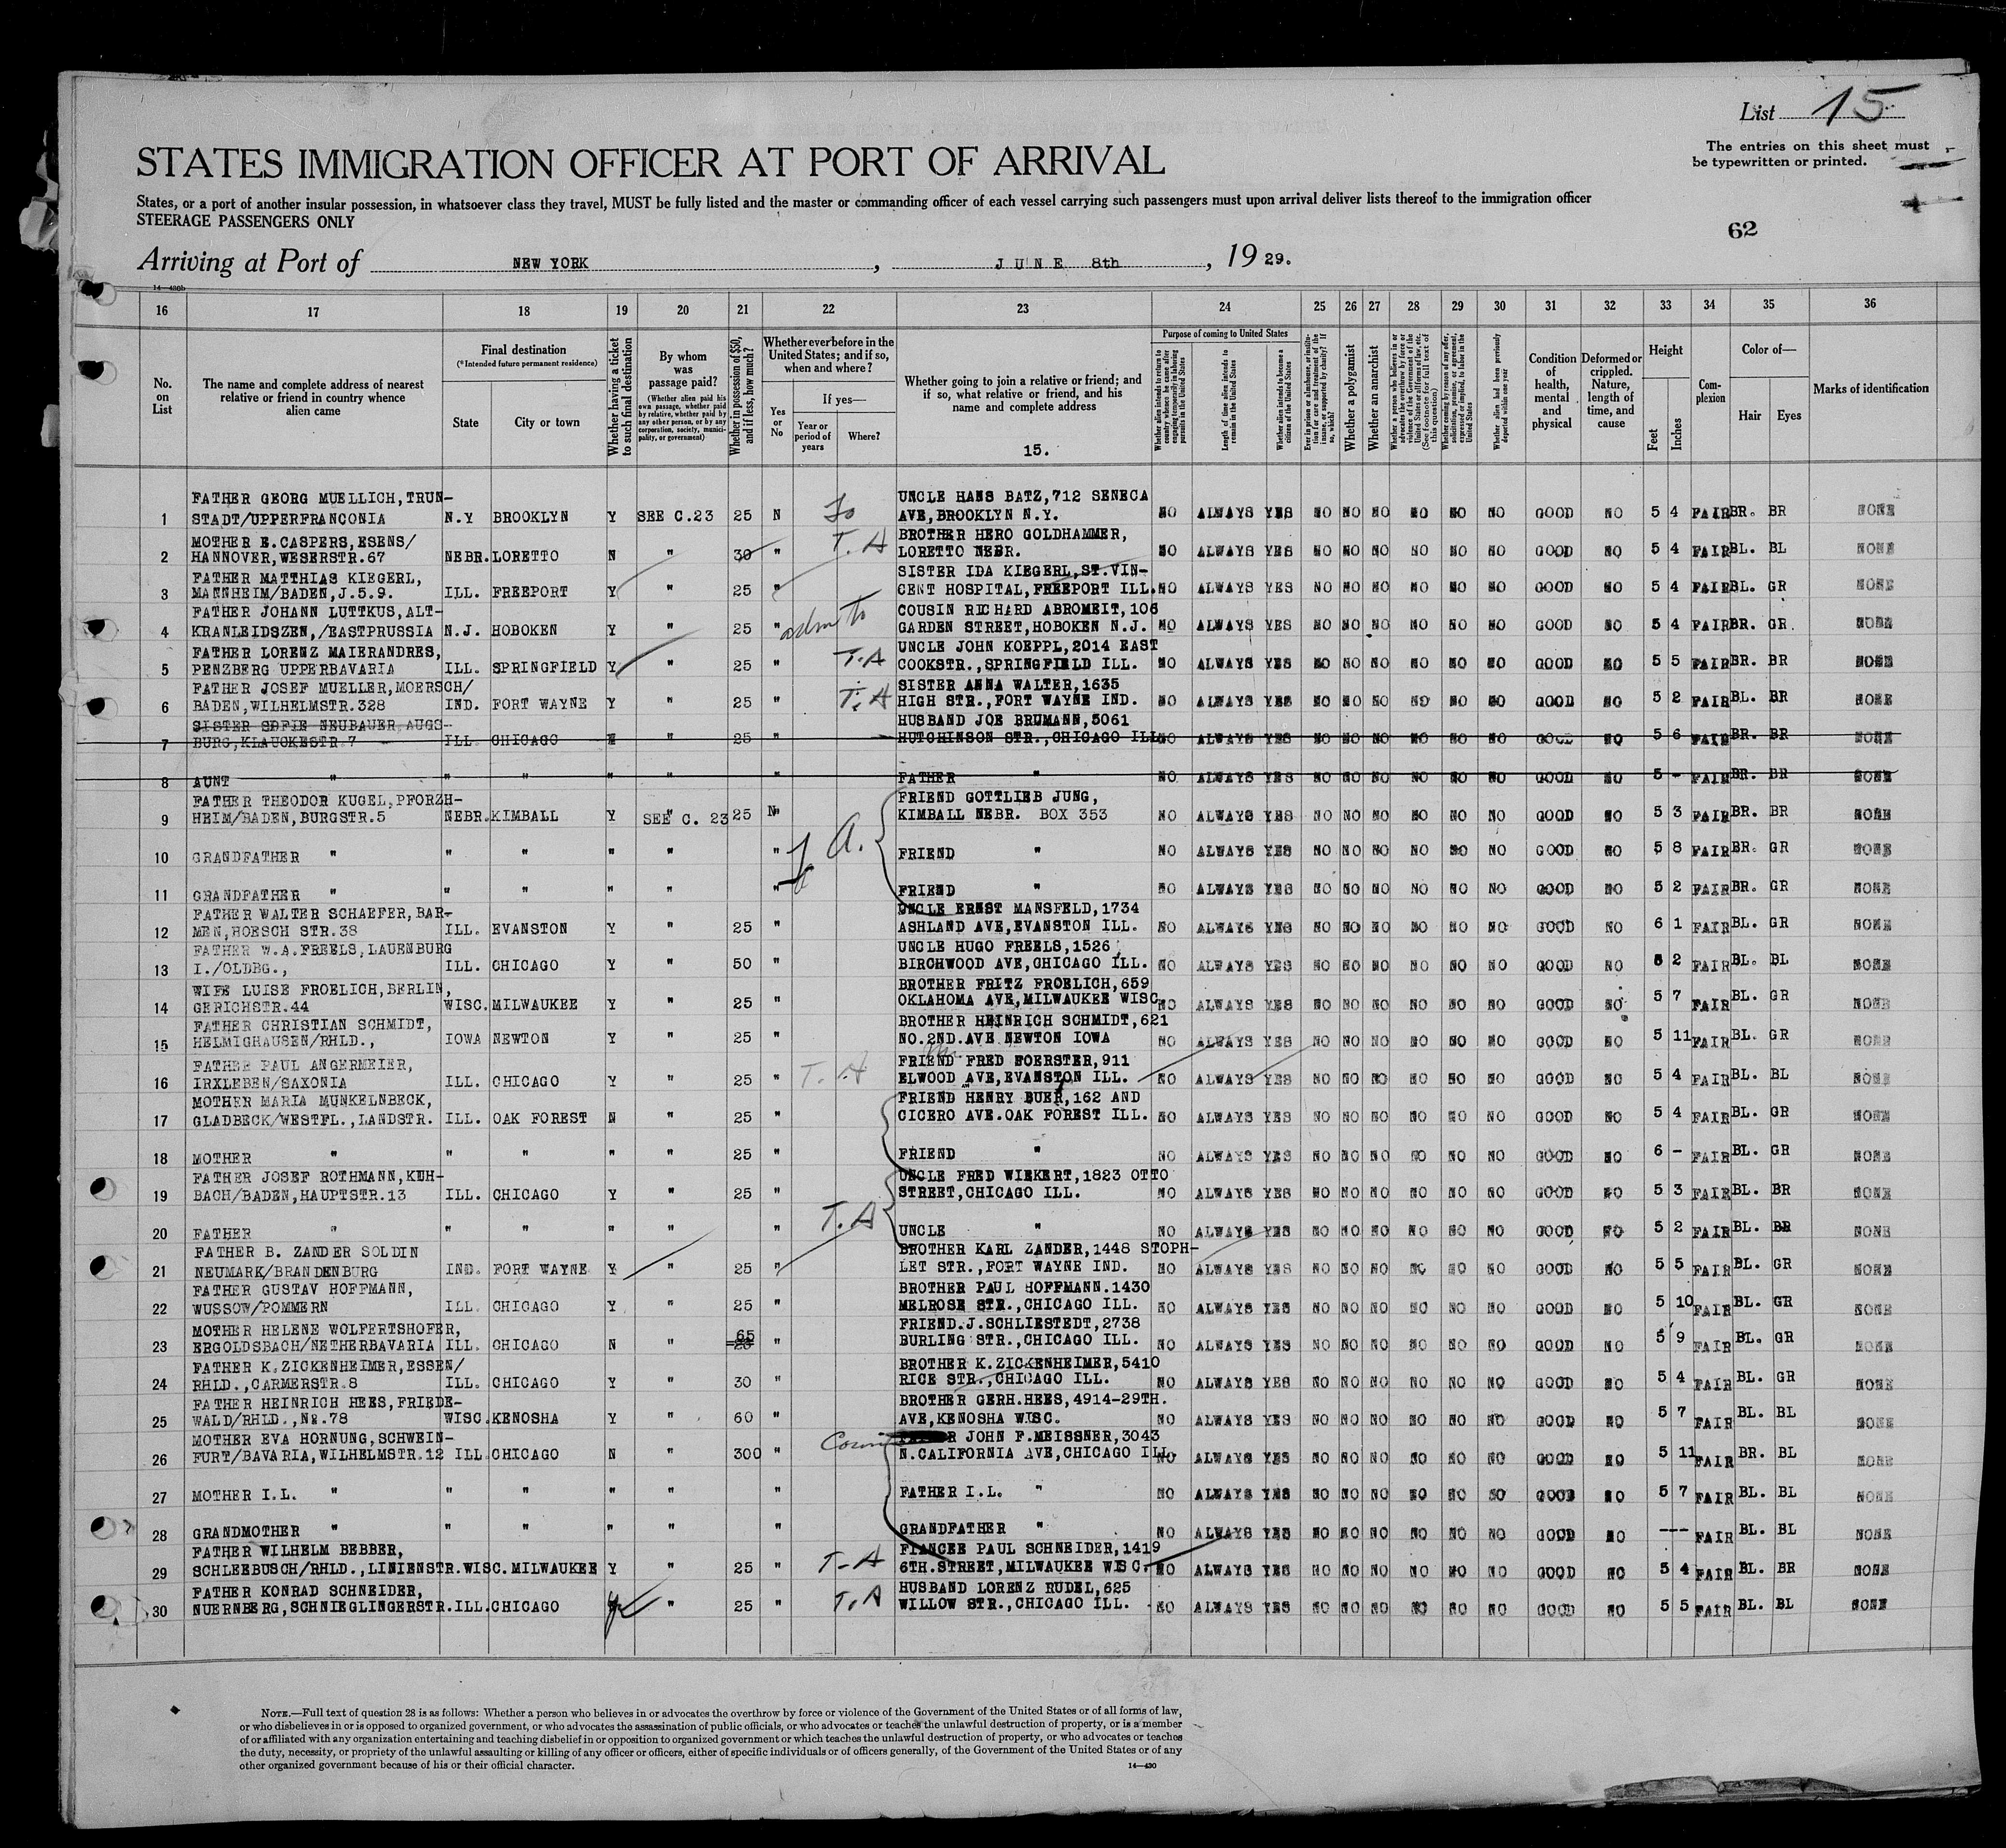 List 15
The entries on this sheet must
be typewritten or printed.
STATES IMMIGRATION OFFICER AT PORT OF ARRIVAL
States, or a port of another insular possession, in whatsoever class they travel, MUST be fully listed and the master or commanding officer of each vessel carrying such passengers must upon arrival deliver lists thereof to the immigration officer
STEERAGE PASSENGERS ONLY
62
Arriving at Port of NEW YORK, JUNE 8th, 1929.
14—430b
16 17 18 19 20 21 22 23 24 25 26 27 28 29 30 31 32 33 34 35 36
No. on List
The name and complete address of nearest relative or friend in country whence alien came
Final destination
(*Intended future permanent residence)
State
City or town
Whether having a ticket to such final destination
By whom was passage paid?
(Whether alien paid his own passage, whether paid by relative, whether paid by any other person, or by any corporation, society, municipality, or government)
Whether in possession of $50, and if less, how much?
Whether ever before in the United States; and if so, when and where?
Yes or No
If yes—
Year or period of years
Where?
Whether going to join a relative or friend; and if so, what relative or friend, and his name and complete address
15.
Purpose of coming to United States
Whether alien intends to return to country whence he came after engaging temporarily in laboring pursuits in the United States
Length of time alien intends to remain in the United States
Whether alien intends to become a citizen of the United States
Ever in prison or almshouse, or institution for care and treatment of the insane, or supported by charity? If so, which?
Whether a polygamist
Whether an anarchist
Whether a person who believes in or advocates the overthrow by force or violence of the Government of the United States or all forms of law, etc. (See footnote for full text of this question)
Whether coming by reason of any offer, solicitation, promise, or agreement, expressed or implied, to labor in the United States
Whether alien had been previously deported within one year
Condition of health, mental and physical
Deformed or crippled. Nature, length of time, and cause
Height
Feet
Inches
Complexion
Color of—
Hair
Eyes
Marks of identification
FATHER GEORG MUELLICH, TRUN- UNCLE HANS BATZ, 712 SENECA
1 STADT/UPPERFRANCONIA N.Y BROOKLYN Y SEE C.23 25 N AVE, BROOKLYN N.Y. NO ALWAYS YES NO NO NO NO NO NO GOOD NO 5 4 FAIR BR. BR NONE
MOTHER E. CASPERS, ESENS/ T.A BROTHER HERO GOLDHAMMER,
2 HANNOVER, WESERSTR. 67 NEBR. LORETTO N " 30 " LORETTO NEBR. NO ALWAYS YES NO NO NO NO NO NO GOOD NO 5 4 FAIR BL. BL NONE
FATHER MATTHIAS KIEGERL, SISTER IDA KIEGERL, ST. VIN-
3 MANNHEIM/BADEN, J.5.9. ILL. FREEPORT Y " 25 " CENT HOSPITAL, FREEPORT ILL. NO ALWAYS YES NO NO NO NO NO NO GOOD NO 5 4 FAIR BL. GR NONE
FATHER JOHANN LUTTKUS, ALT- COUSIN RICHARD ABROMEIT, 106
4 KRANLEIDSZEN,/EASTPRUSSIA N.J. HOBOKEN Y " 25 " GARDEN STREET, HOBOKEN N.J. NO ALWAYS YES NO NO NO NO NO NO GOOD NO 5 4 FAIR BR. GR. NONE
FATHER LORENZ MAIERANDRES, UNCLE JOHN KOEPPL, 2014 EAST
5 PENZBERG UPPERBAVARIA ILL. SPRINGFIELD Y " 25 " T.A COOKSTR., SPRINGFIELD ILL. NO ALWAYS YES NO NO NO NO NO NO GOOD NO 5 5 FAIR BR. BR NONE
FATHER JOSEF MUELLER, MOERSCH/ SISTER ANNA WALTER, 1635
6 BADEN, WILHELMSTR. 328 IND. FORT WAYNE Y " 25 " T.A HIGH STR., FORT WAYNE IND. NO ALWAYS YES NO NO NO NO NO NO GOOD NO 5 2 FAIR BL. BR NONE
SISTER SOFIE NEUBAUER, AUGS- HUSBAND JOE BRUMANN, 5061
7 BURG, KLAUCKESTR. 7 ILL CHICAGO N " 25 " HUTCHINSON STR., CHICAGO ILL. NO ALWAYS YES NO NO NO NO NO NO GOOD NO 5 6 FAIR BR. BR NONE
8 AUNT " " " " " " FATHER " NO ALWAYS YES NO NO NO NO NO NO GOOD NO 5 - FAIR BR. BR NONE
FATHER THEODOR KUGEL, PFORZH- FRIEND GOTTLIEB JUNG,
9 HEIM/BADEN, BURGSTR. 5 NEBR. KIMBALL Y SEE C. 23 25 N KIMBALL NEBR. BOX 353 NO ALWAYS YES NO NO NO NO NO NO GOOD NO 5 3 FAIR BR. BR NONE
10 GRANDFATHER " " " " " " FRIEND " NO ALWAYS YES NO NO NO NO NO NO GOOD NO 5 8 FAIR BR. GR NONE
11 GRANDFATHER " " " " " " FRIEND " NO ALWAYS YES NO NO NO NO NO NO GOOD NO 5 2 FAIR BR. GR NONE
FATHER WALTER SCHAEFER, BAR- UNCLE ERNST MANSFELD, 1734
12 MEN, HOESCH STR. 38 ILL. EVANSTON Y " 25 " ASHLAND AVE, EVANSTON ILL. NO ALWAYS YES NO NO NO NO NO NO GOOD NO 6 1 FAIR BL. GR NONE
FATHER W.A. FREELS, LAUENBURG UNCLE HUGO FREELS, 1526
13 I./OLDBG., ILL. CHICAGO Y " 50 " BIRCHWOOD AVE, CHICAGO ILL. NO ALWAYS YES NO NO NO NO NO NO GOOD NO 5 2 FAIR BL. BL NONE
WIFE LUISE FROELICH, BERLIN, BROTHER FRITZ FROELICH, 659
14 GERICHSTR. 44 WISC. MILWAUKEE Y " 25 " OKLAHOMA AVE, MILWAUKEE WISC. NO ALWAYS YES NO NO NO NO NO NO GOOD NO 5 7 FAIR BL. GR NONE
FATHER CHRISTIAN SCHMIDT, BROTHER HEINRICH SCHMIDT, 621
15 HELMIGHAUSEN/RHLD., IOWA NEWTON Y " 25 " NO. 2ND. AVE NEWTON IOWA NO ALWAYS YES NO NO NO NO NO NO GOOD NO 5 11 FAIR BL. GR NONE
FATHER PAUL ANGERMEIER, FRIEND FRED FOERSTER, 911
16 IRXLEBEN/SAXONIA ILL. CHICAGO Y " 25 " T.A ELWOOD AVE, EVANSTON ILL. NO ALWAYS YES NO NO NO NO NO NO GOOD NO 5 4 FAIR BL. BL NONE
MOTHER MARIA MUNKELNBECK, FRIEND HENRY BUER, 162 AND
17 GLADBECK/WESTFL., LANDSTR. ILL. OAK FOREST N " 25 " CICERO AVE. OAK FOREST ILL. NO ALWAYS YES NO NO NO NO NO NO GOOD NO 5 4 FAIR BL. GR NONE
18 MOTHER " " " " " 25 " FRIEND " NO ALWAYS YES NO NO NO NO NO NO GOOD NO 6 - FAIR BL. GR NONE
FATHER JOSEF ROTHMANN, KUH- UNCLE FRED WIEKERT, 1823 OTTO
19 BACH/BADEN, HAUPTSTR. 13 ILL. CHICAGO Y " 25 " STREET, CHICAGO ILL. NO ALWAYS YES NO NO NO NO NO NO GOOD NO 5 3 FAIR BL. BR NONE
20 FATHER " " " " " " T.A UNCLE " NO ALWAYS YES NO NO NO NO NO NO GOOD NO 5 2 FAIR BL. BR NONE
FATHER B. ZANDER SOLDIN BROTHER KARL ZANDER, 1448 STOPH-
21 NEUMARK/BRANDENBURG IND. FORT WAYNE Y " 25 " LET STR., FORT WAYNE IND. NO ALWAYS YES NO NO NO NO NO NO GOOD NO 5 5 FAIR BL. GR NONE
FATHER GUSTAV HOFFMANN, BROTHER PAUL HOFFMANN. 1430
22 WUSSOW/POMMERN ILL. CHICAGO Y " 25 " MELROSE STR., CHICAGO ILL. NO ALWAYS YES NO NO NO NO NO NO GOOD NO 5 10 FAIR BL. GR NONE
MOTHER HELENE WOLFERTSHOFER, 65 FRIEND. J. SCHLIESTEDT, 2738
23 ERGOLDSBACH/NETHERBAVARIA ILL. CHICAGO N " " BURLING STR., CHICAGO ILL. NO ALWAYS YES NO NO NO NO NO NO GOOD NO 5 9 FAIR BL. GR NONE
FATHER K. ZICKENHEIMER, ESSEN/ BROTHER K. ZICKENHEIMER, 5410
24 RHLD., CARMERSTR. 8 ILL. CHICAGO Y " 30 " RICE STR., CHICAGO ILL. NO ALWAYS YES NO NO NO NO NO NO GOOD NO 5 4 FAIR BL. GR NONE
FATHER HEINRICH HEES, FRIEDE- BROTHER GERH. HEES, 4914-29TH.
25 WALD/RHLD., No. 78 WISC. KENOSHA Y " 60 " AVE, KENOSHA WISC. NO ALWAYS YES NO NO NO NO NO NO GOOD NO 5 7 FAIR BL. BL NONE
MOTHER EVA HORNUNG, SCHWEIN- JOHN F. MEISSNER, 3043
26 FURT/BAVARIA, WILHELMSTR. 12 ILL CHICAGO N " 300 " N. CALIFORNIA AVE, CHICAGO ILL. NO ALWAYS YES NO NO NO NO NO NO GOOD NO 5 11 FAIR BR. BL NONE
27 MOTHER I.L. " " " " " " FATHER I.L. " NO ALWAYS YES NO NO NO NO NO NO GOOD NO 5 7 FAIR BL. BL NONE
28 GRANDMOTHER " " " " " " GRANDFATHER " NO ALWAYS YES NO NO NO NO NO NO GOOD NO --- FAIR BL. BL NONE
FATHER WILHELM BEBBER, FIANCEE PAUL SCHNEIDER, 1419
29 SCHLEEBUSCH/RHLD., LINIENSTR. WISC. MILWAUKEE Y " 25 " T-A 6TH. STREET, MILWAUKEE WISC. NO ALWAYS YES NO NO NO NO NO NO GOOD NO 5 4 FAIR BL. BR NONE
FATHER KONRAD SCHNEIDER, HUSBAND LORENZ RUDEL, 625
30 NUERNBERG, SCHNIEGLINGERSTR. ILL. CHICAGO " 25 " T.A WILLOW STR., CHICAGO ILL. NO ALWAYS YES NO NO NO NO NO NO GOOD NO 5 5 FAIR BL. BL NONE
NOTE.—Full text of question 28 is as follows: Whether a person who believes in or advocates the overthrow by force or violence of the Government of the United States or of all forms of law,
or who disbelieves in or is opposed to organized government, or who advocates the assassination of public officials, or who advocates or teaches the unlawful destruction of property, or is a member
of or affiliated with any organization entertaining and teaching disbelief in or opposition to organized government or which teaches the unlawful destruction of property, or who advocates or teaches
the duty, necessity, or propriety of the unlawful assaulting or killing of any officer or officers, either of specific individuals or of officers generally, of the Government of the United States or of any
other organized government because of his or their official character.
14—430